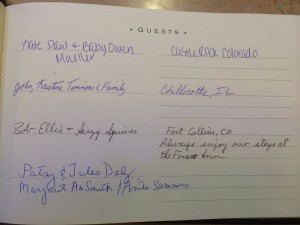 GUESTS
Kate, Paul & Baby Owen
Mueller
Castle Rock Colorado
John, Kristine Timmons & Family
Chillicothe, IL
Bob Ellis + Squires
Fort Collins, CO
Always enjoy our stays at
the Inn
Patsy & Jules Daly
Margaret Ann Smith / Sammons